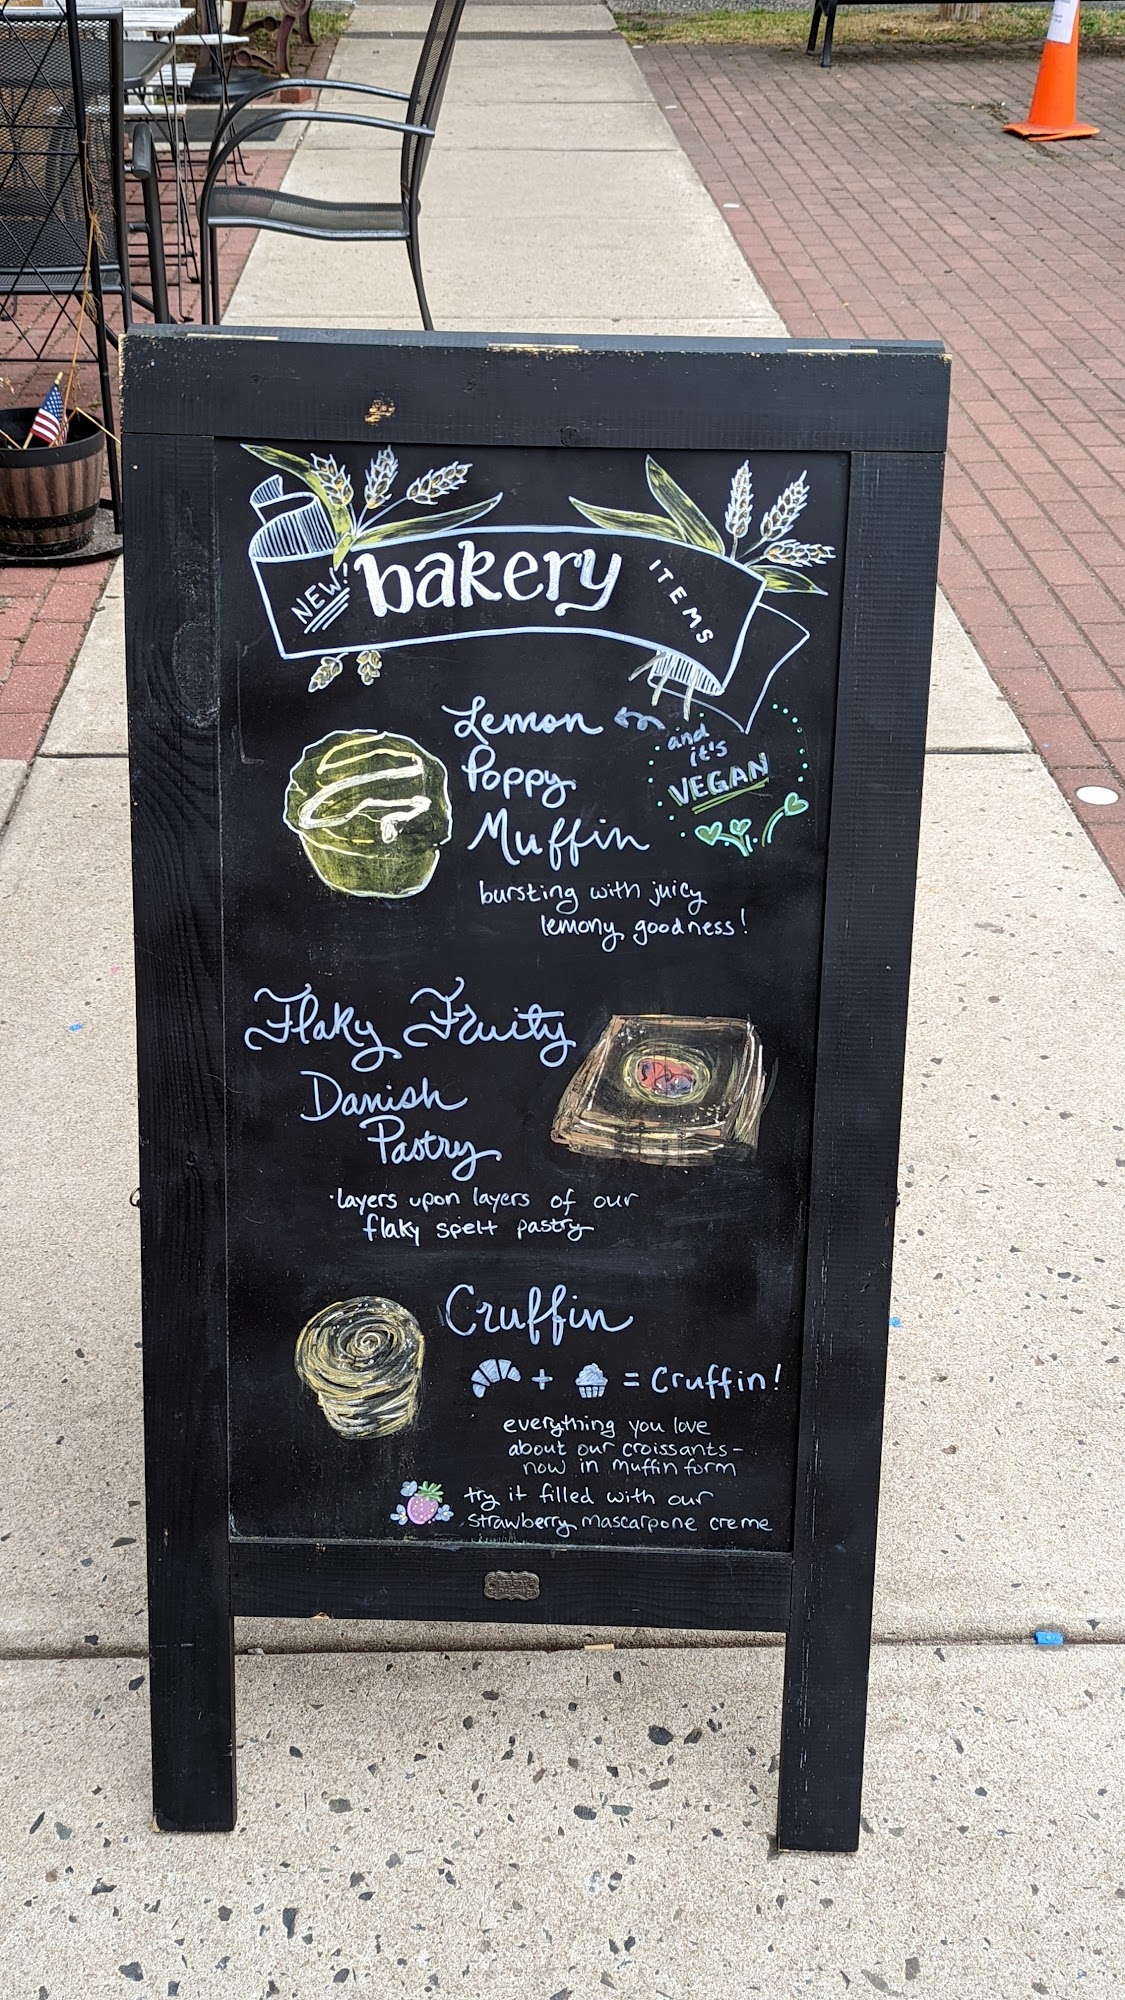 NEW! bakery ITEMS
Lemon
Poppy
Muffin
and
it's
VEGAN
bursting with juicy
lemony goodness!
Flaky Fruity
Danish
Pastry
layers upon layers of our
flaky spelt pastry
Cruffin
+ = Cruffin!
everything you love
about our croissants-
now in muffin form
try it filled with our
strawberry mascarpone creme